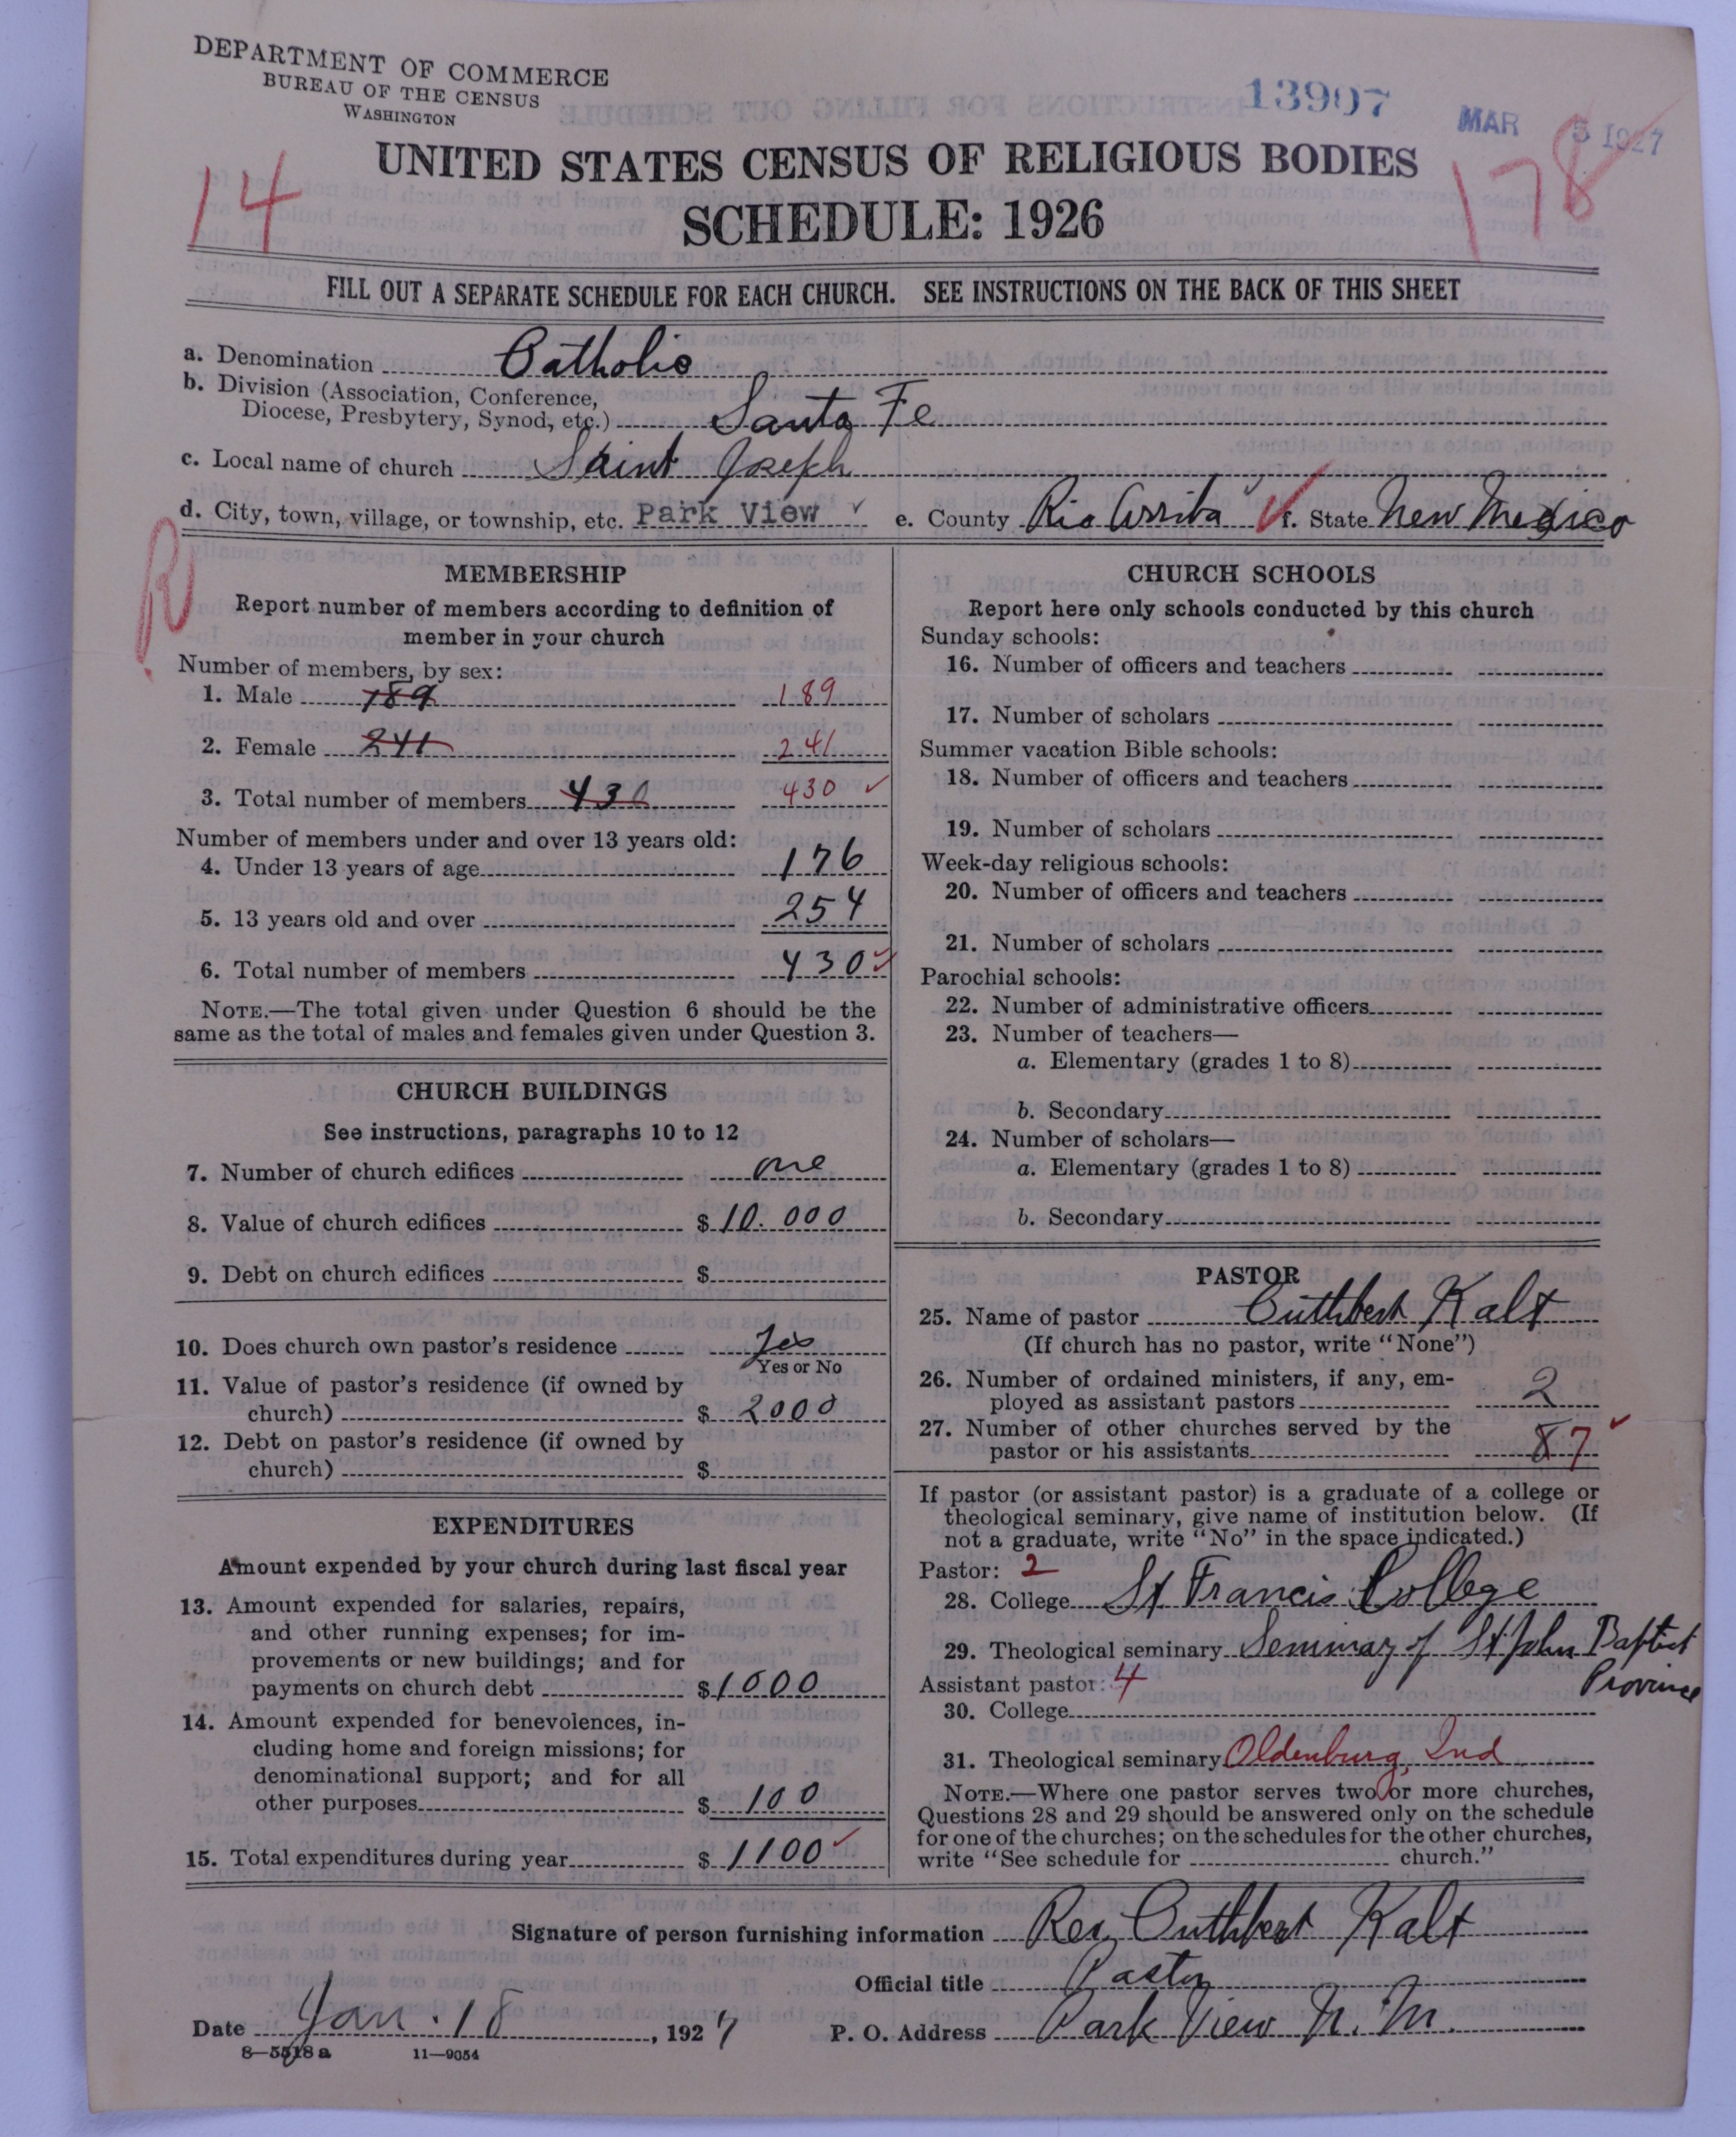 DEPARTMENT OF COMMERCE
BUREAU OF THE CENSUS
WASHINGTON
13907
MAR 5 1927
14
178
UNITED STATES CENSUS OF RELIGIOUS BODIES
SCHEDULE: 1926
FILL OUT A SEPARATE SCHEDULE FOR EACH CHURCH. SEE INSTRUCTIONS ON THE BACK OF THIS SHEET
a. Denomination Catholic
b. Division (Association, Conference,
Diocese, Presbytery, Synod, etc.) Santa Fe
c. Local name of church Saint Joseph
d. City, town, village, or township, etc. Park View ✓ e. County Rio Arriba ✓ f. State New Mexico
R
MEMBERSHIP
Report number of members according to definition of
member in your church
Number of members, by sex:
1. Male 189 189
2. Female 241 241
3. Total number of members 430 430 ✓
Number of members under and over 13 years old:
4. Under 13 years of age 176
5. 13 years old and over 254
6. Total number of members 430 ✓
NOTE.—The total given under Question 6 should be the
same as the total of males and females given under Question 3.
CHURCH BUILDINGS
See instructions, paragraphs 10 to 12
7. Number of church edifices one
8. Value of church edifices $ 10.000
9. Debt on church edifices $
10. Does church own pastor's residence Yes
Yes or No
11. Value of pastor's residence (if owned by
church) $ 2000
12. Debt on pastor's residence (if owned by
church) $
EXPENDITURES
Amount expended by your church during last fiscal year
13. Amount expended for salaries, repairs,
and other running expenses; for im-
provements or new buildings; and for
payments on church debt $ 1000
14. Amount expended for benevolences, in-
cluding home and foreign missions; for
denominational support; and for all
other purposes $ 100
15. Total expenditures during year $ 1100 ✓
CHURCH SCHOOLS
Report here only schools conducted by this church
Sunday schools:
16. Number of officers and teachers
17. Number of scholars
Summer vacation Bible schools:
18. Number of officers and teachers
19. Number of scholars
Week-day religious schools:
20. Number of officers and teachers
21. Number of scholars
Parochial schools:
22. Number of administrative officers
23. Number of teachers—
a. Elementary (grades 1 to 8)
b. Secondary
24. Number of scholars—
a. Elementary (grades 1 to 8)
b. Secondary
PASTOR
25. Name of pastor Cuthbert Kalt
(If church has no pastor, write "None")
26. Number of ordained ministers, if any, em-
ployed as assistant pastors 2
27. Number of other churches served by the
pastor or his assistants 8 7 ✓
If pastor (or assistant pastor) is a graduate of a college or
theological seminary, give name of institution below. (If
not a graduate, write "No" in the space indicated.)
Pastor: 2
28. College St Francis College
29. Theological seminary Seminary of St John Baptist
Province
Assistant pastor: 4
30. College
31. Theological seminary Oldenburg, Ind
NOTE.—Where one pastor serves two or more churches,
Questions 28 and 29 should be answered only on the schedule
for one of the churches; on the schedules for the other churches,
write "See schedule for church."
Signature of person furnishing information Rev Cuthbert Kalt
Official title Pastor
Date Jan. 18, 1927 P. O. Address Park View N. M.
8—5518 a 11—9054